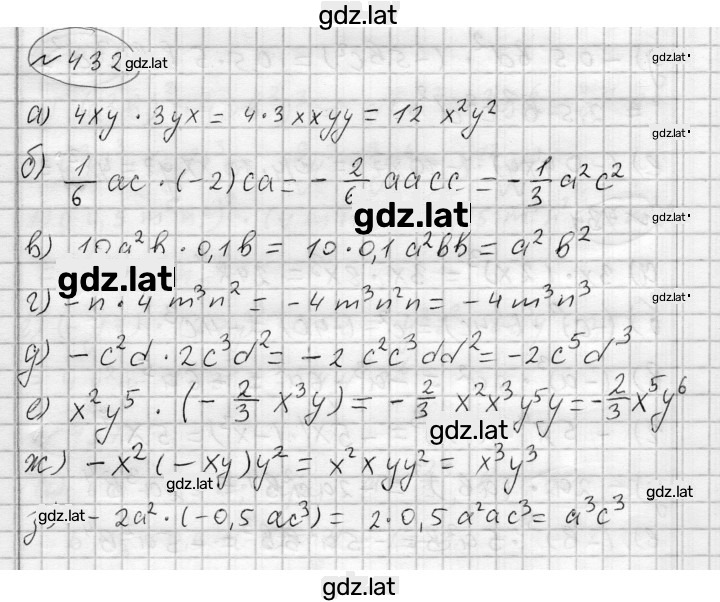 gdz.lat
№ 432 gdz.lat gdz.lat
а) 4xy · 3yx = 4·3xxyy = 12 x²y²
gdz.lat
б) 1/6 ac · (-2)ca = - 2/6 aacc = - 1/3 a²c²
gdz.lat gdz.lat
в) 10a²b · 0,1b = 10·0,1a²bb = a²b²
gdz.lat
г) -n · 4m³n² = -4m³n²n = -4m³n³ gdz.lat
д) -c²d · 2c³d² = -2c²c³dd² = -2c⁵d³
е) x²y⁵ · (- 2/3 x³y) = - 2/3 x²x³y⁵y = - 2/3 x⁵y⁶
gdz.lat
ж) -x²(-xy)y² = x²xyy² = x³y³
gdz.lat gdz.lat
gdz.lat - 2a² · (-0,5ac³) = 2·0,5a²ac³ = a³c³
gdz.lat